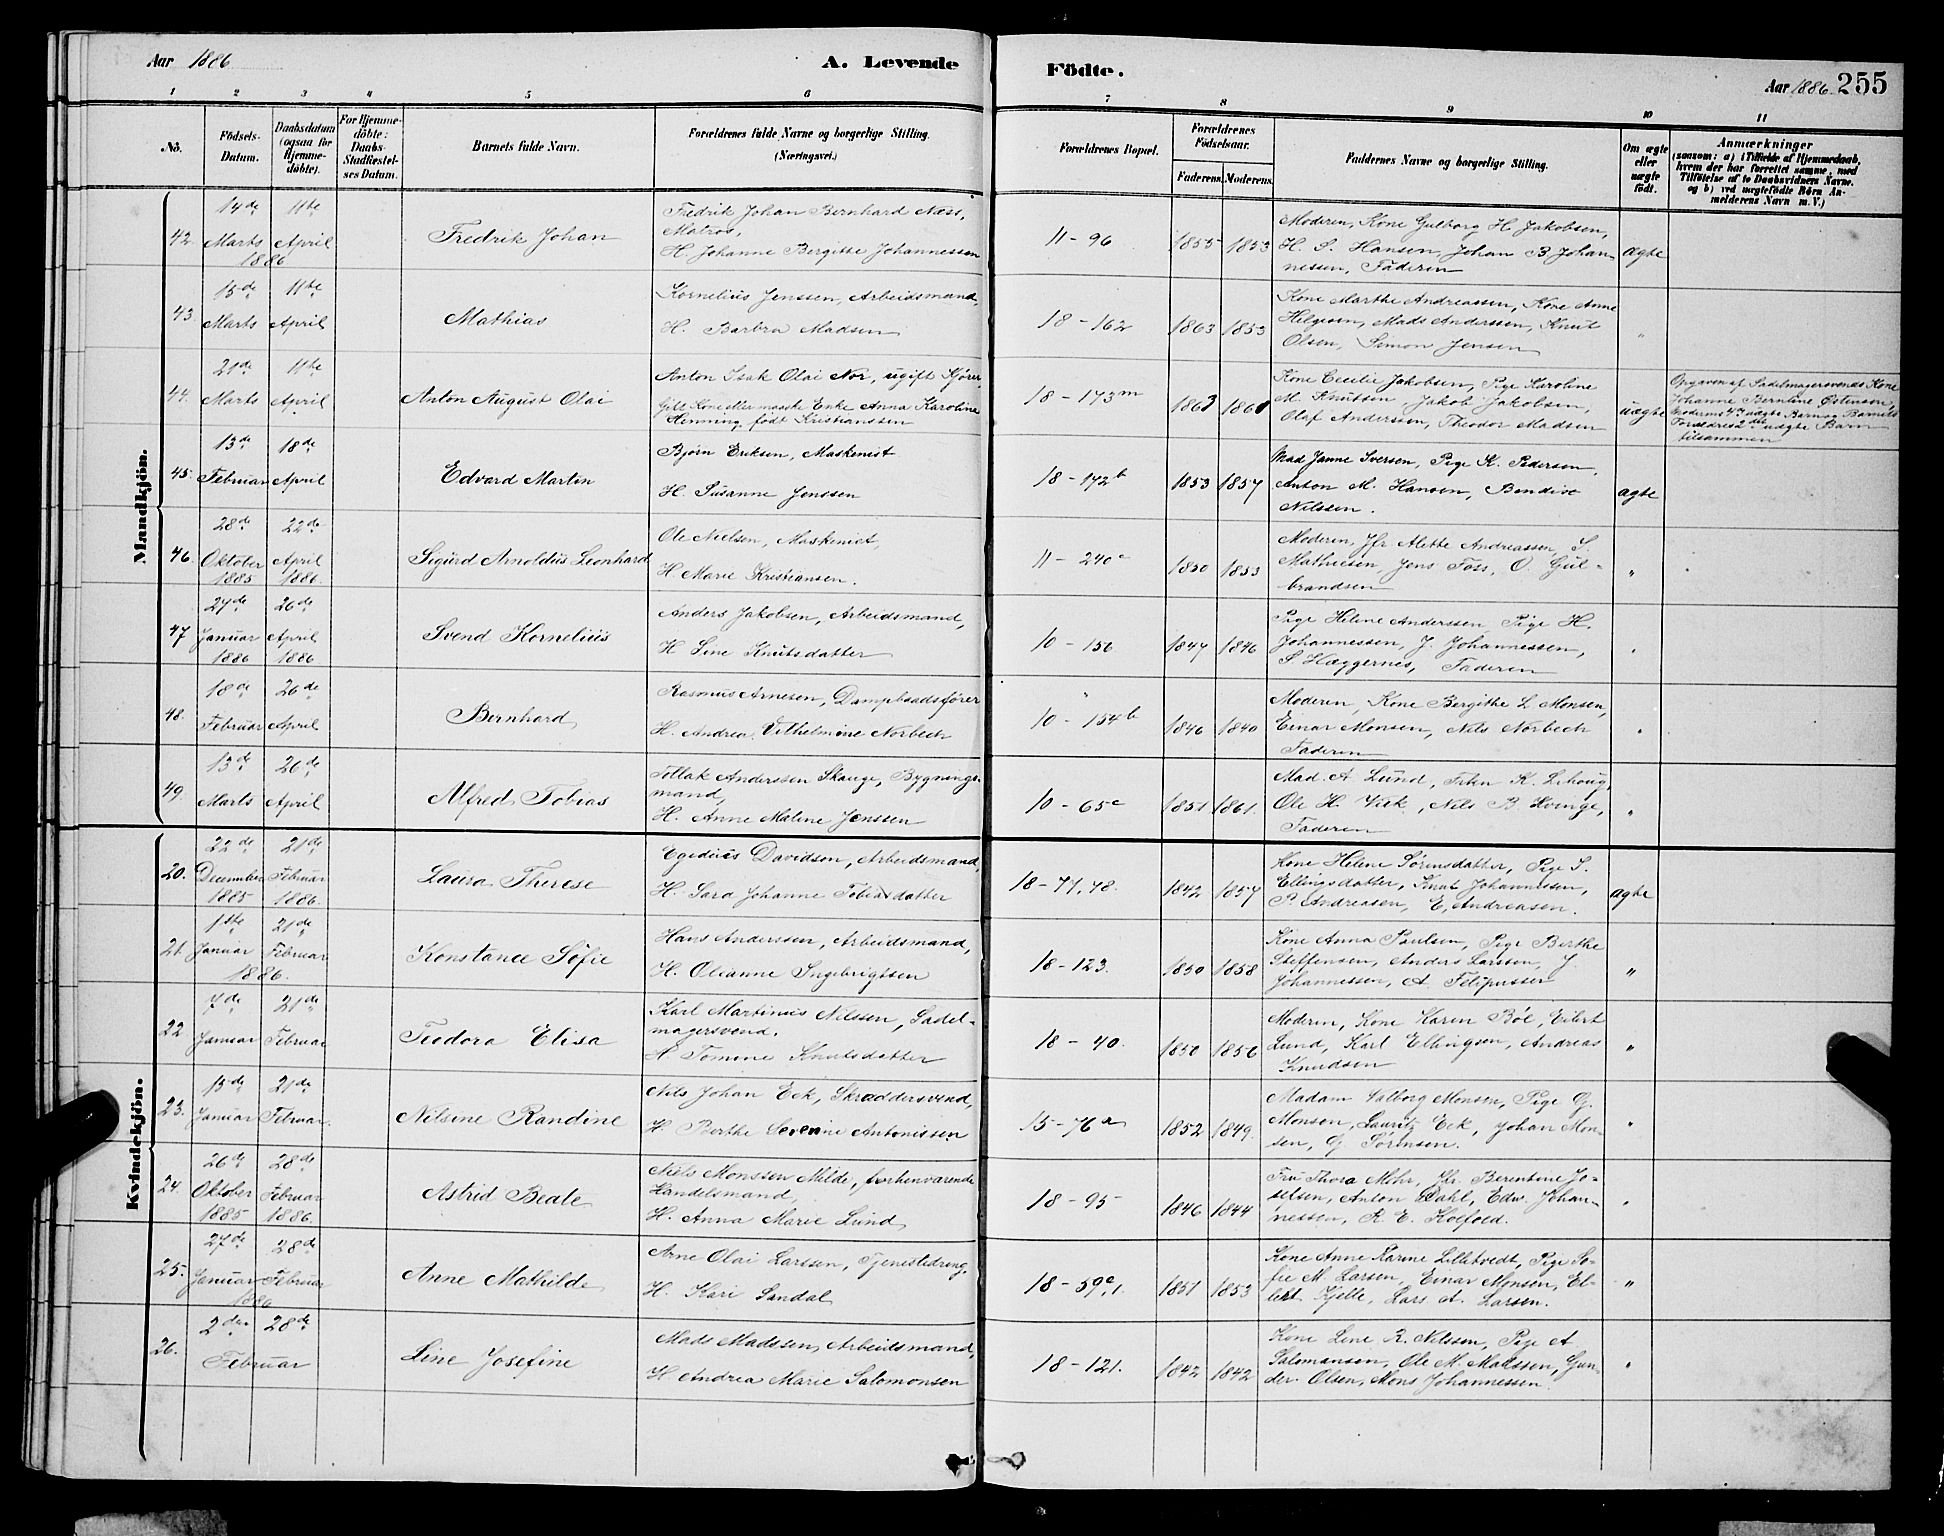 Aar 1886
A. Levende
Födte.
Aar 1886. 255
1 2 3 4 5 6 7 8 9 10 11
No.
Födsels-
Datum.
Daabsdatum
(ogsaa for
Hjemme-
döbte).
For Hjemme-
döbte:
Daabs-
Stadfæstel-
ses Datum.
Barnets fulde Navn.
Forældrenes fulde Navne og borgerlige Stilling.
(Næringsvei.)
Forældrenes Bopæl.
Forældrenes
Födselsaar.
Faderens. Moderens.
Faddernes Navne og borgerlige Stilling.
Om ægte
eller
uægte
födt.
Anmærkninger
(saasom: a) i Tilfælde af Hjemmedaab,
hvem der har forrettet samme, med
Tilföielse af to Daabsvidners Navne,
og b) ved uægtefödte Börn An-
melderens Navn m. V.)
Mandkjön.
42. 14de Marts 1886 11te April
Fredrik Johan
Fredrik Johan Bernhard Næss,
Matros,
H. Johanne Bergitte Johannessen
11-96 1855 1853
Moderen, Kone Gulborg H. Jakobsen,
H. S. Hansen, Johan B. Johan-
nessen, Faderen
ægte
43. 15de Marts 11te April
Mathias
Kornelius Jenssen, Arbeidsmand,
H. Barbra Madsen
18-162 1863 1853
Kone Marthe Andreassen, Kone Anne
Helgesen, Mads Anderssen, Knut
Olsen, Simon Jensen
"
44. 21de Marts 11te April
Anton August Olai
Anton Isak Olai Nor, ugift Kjører,
Gift Kone eller maaske Enke Anna Karoline
Henning, født Kristianssen
18-173m 1863 1861
Kone Cecilie Jakobsen, Pige Karoline
M. Knutsen, Jakob Jakobsen,
Olaf Anderssen, Theodor Madsen
uægte
Opgaven af Sadelmagersvends Kone
Johanne Berntine Østensen,
Moderens 4de uægte Barn og Barnets
Forældres 2det uægte Barn
tilsammen
45. 13de Februar 18de April
Edvard Martin
Bjørn Eriksen, Maskinist
H. Susanne Jenssen
18-172b 1853 1857
Mad Janne Iversen, Pige K. Pedersen,
Anton M. Hansen, Bendix
Nilssen.
ægte
46. 28de Oktober 1885 22de April 1886.
Sigurd Arnoldus Leonhard
Ole Nielsen, Maskinist,
H. Marie Kristiansen.
11-240c 1850 1853
Moderen, Jfr Alette Andreassen, S.
Mathiesen, Jens Foss, O. Gul-
brandsen
"
47 27de Januar 1886 26de April 1886
Svend Kornelius
Anders Jakobsen, Arbeidsmand,
H Sine Knutsdatter
10-156 1847 1846
Pige Helene Anderssen, Pige H.
Johannessen, J. Johannessen,
S Hæggernes, Faderen
"
48. 18de Februar 26de April
Bernhard
Rasmus Arnesen, Dampbaadsfører
H. Andrea Vilhelmine Norbech
10-154b 1846 1840
Moderen, Kone Bergithe L Monsen,
Einar Monsen, Nils Norbech
Faderen
"
49. 13de Marts 26de April
Alfred Tobias
Tollak Anderssen Skauge, Bygnings-
mand,
H. Anne Maline Jenssen
10-65c 1851 1861.
Mad. A Lund, Frken K. Lihoug,
Ole H. Viik, Nils B. Hvinge,
Faderen
"
Kvindekjön.
20. 22de December 1885 21de Februar 1886.
Laura Therese
Egedius Davidson, Arbeidsmand,
H. Sara Johanne Tobiasdatter
18-77,78. 1842 1857
Kone Helene Sørensdatter, Pige S.
Ellingsdatter, Knut Johannessen,
P. Andreasen, E. Andreasen.
ægte
21. 1ste Januar 1886. 21de Februar
Konstance Sofie
Hans Anderssen, Arbeidsmand,
H. Olianne Ingebrigtsen
18-123. 1850 1858
Kone Anna Paulsen, Pige Berthe
Steffensen, Anders Larssen, J.
Johannessen, A. Filipussen
"
22 7de Januar 21de Februar
Teodora Elisa
Karl Martinus Nilssen, Sadel-
magersvend.
H Tomine Knutsdatter
18-40. 1850 1856
Moderen, Kone Karen Böe, Eilert
Lund, Karl Ellingsen, Andreas
Knudsen
"
23. 15de Januar 21de Februar.
Nilsine Randine
Nils Johan Eck, Skræddersvend,
H. Berthe Severine Antonissen
15-76a 1852 1849.
Madam Valborg Monsen, Pige G.
Monsen, Lauritz Eck, Johan Mon-
sen, G Sørensen.
"
24. 26de Oktober 1885 28de Februar 1886.
Astrid Beate
Niels Monssen Milde, forhenværende
Handelsmand,
H. Anna Marie Lund
18-95 1846 1844
Fru Thora Mohr, Jfr. Berentine Jo-
selsen, Anton Dahl, Edw. Johan-
nessen, R. E. Kolfoed.
"
25. 27de Januar 1886 28de Februar
Anne Mathilde
Arne Olai Larssen, Tjenestedreng,
H. Kari Sandal
18-59c,1. 1851 1853
Kone Anne Karine Lilletvedt, Pige So-
fie M. Larsen, Einar Monsen, El-
lert Kjelle, Lars A. Larsen.
"
26. 2den Februar 28de
Line Josefine
Mads Madssen, Arbeidsmand,
H. Andrea Marie Salomonsen
18-121. 1842 1842
Kone Line R. Nilssen, Pige A
Salomansen, Ole M. Madssen, Gun-
der Olsen, Mons Johannessen.
"